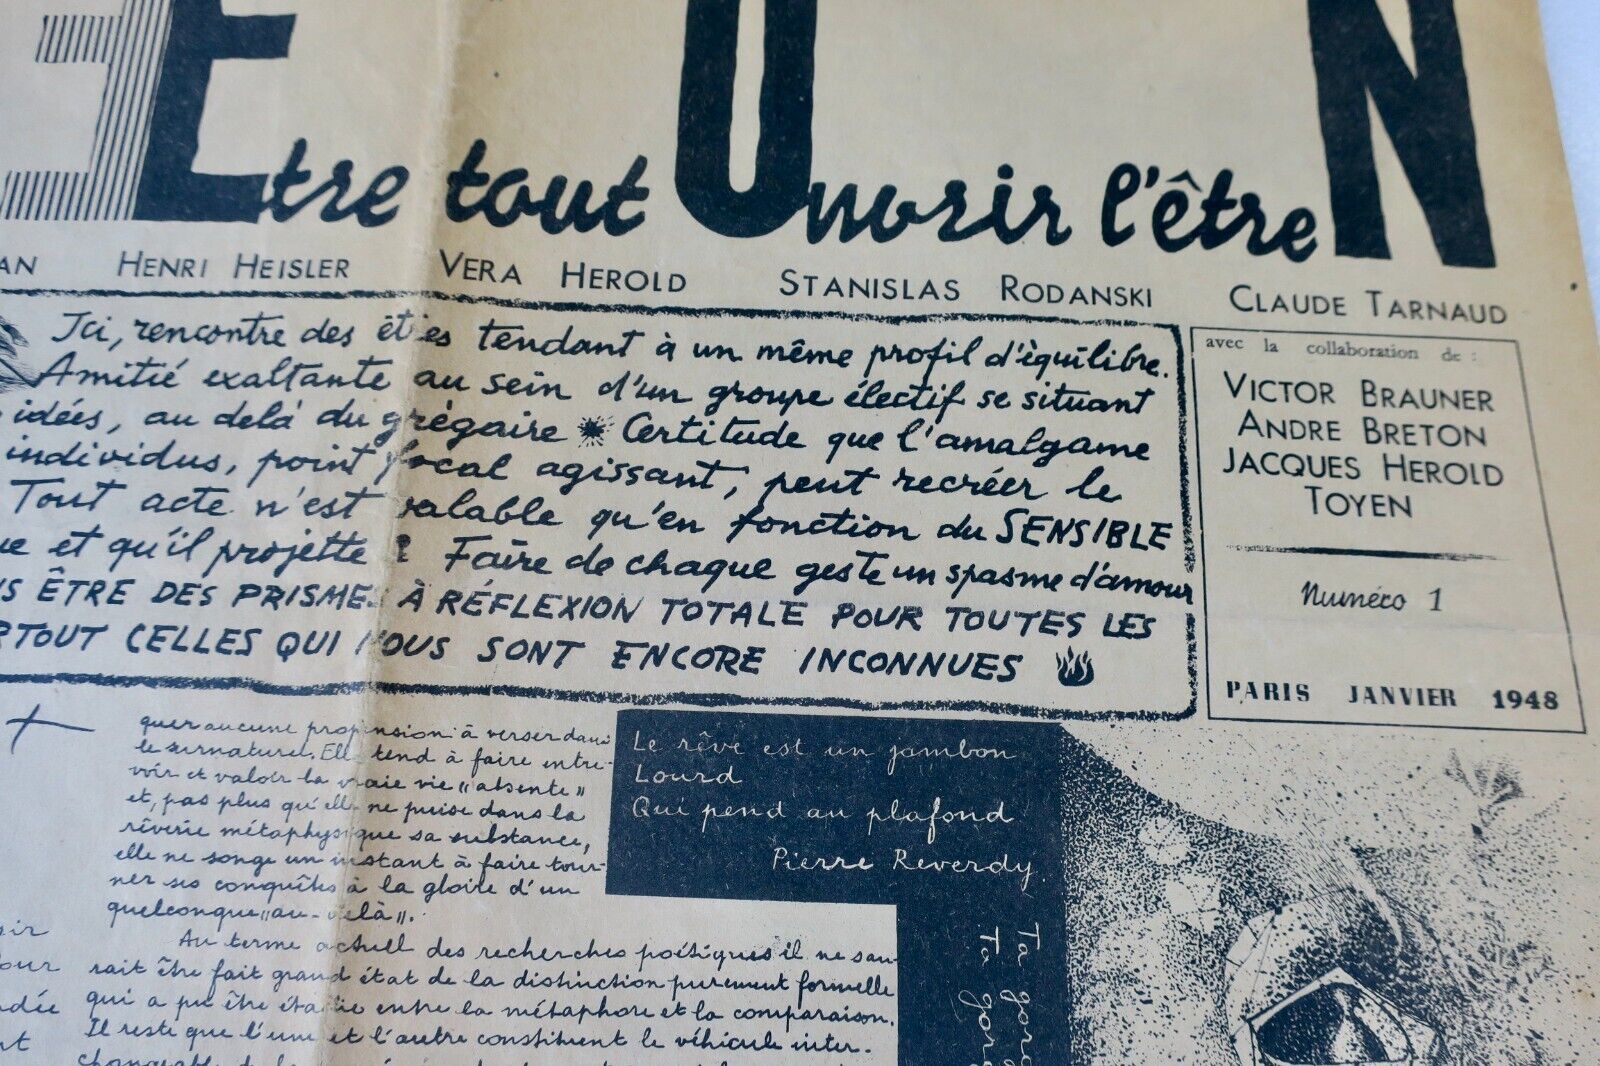 E U N
Etre tout Ouvrir l'être
AN HENRI HEISLER VERA HEROLD STANISLAS RODANSKI CLAUDE TARNAUD
Ici, rencontre des êtres tendant à un même profil d'équilibre.
Amitié exaltante au sein d'un groupe électif se situant
idées, au delà du grégaire Certitude que l'amalgame
individus, point focal agissant, peut recréer le
Tout acte n'est valable qu'en fonction du SENSIBLE
ue et qu'il projette Faire de chaque geste un spasme d'amour
S ÊTRE DES PRISMES À RÉFLEXION TOTALE POUR TOUTES LES
RTOUT CELLES QUI NOUS SONT ENCORE INCONNUES
avec la collaboration de :
VICTOR BRAUNER
ANDRE BRETON
JACQUES HEROLD
TOYEN
Numéro 1
PARIS JANVIER 1948
quer aucune propension à verser dans
le surnaturel. Elle tend à faire entre-
voir et valoir la vraie vie "absente"
et, pas plus qu'elle ne puise dans la
rêverie métaphysique sa substance,
elle ne songe un instant à faire tour-
ner ses conquêtes à la gloire d'un
quelconque "au-delà".
Au terme actuell des recherches poétiques il ne sau-
rait être fait grand état de la distinction purement formelle
qui a pu être établie entre la métaphore et la comparaison.
Il reste que l'une et l'autre constituent le véhicule inter-
changeable de la
Le rêve est un jambon
Lourd
Qui pend au plafond
Pierre Reverdy.
Ta gorg
Ta gorg
sir
our
dée
nt